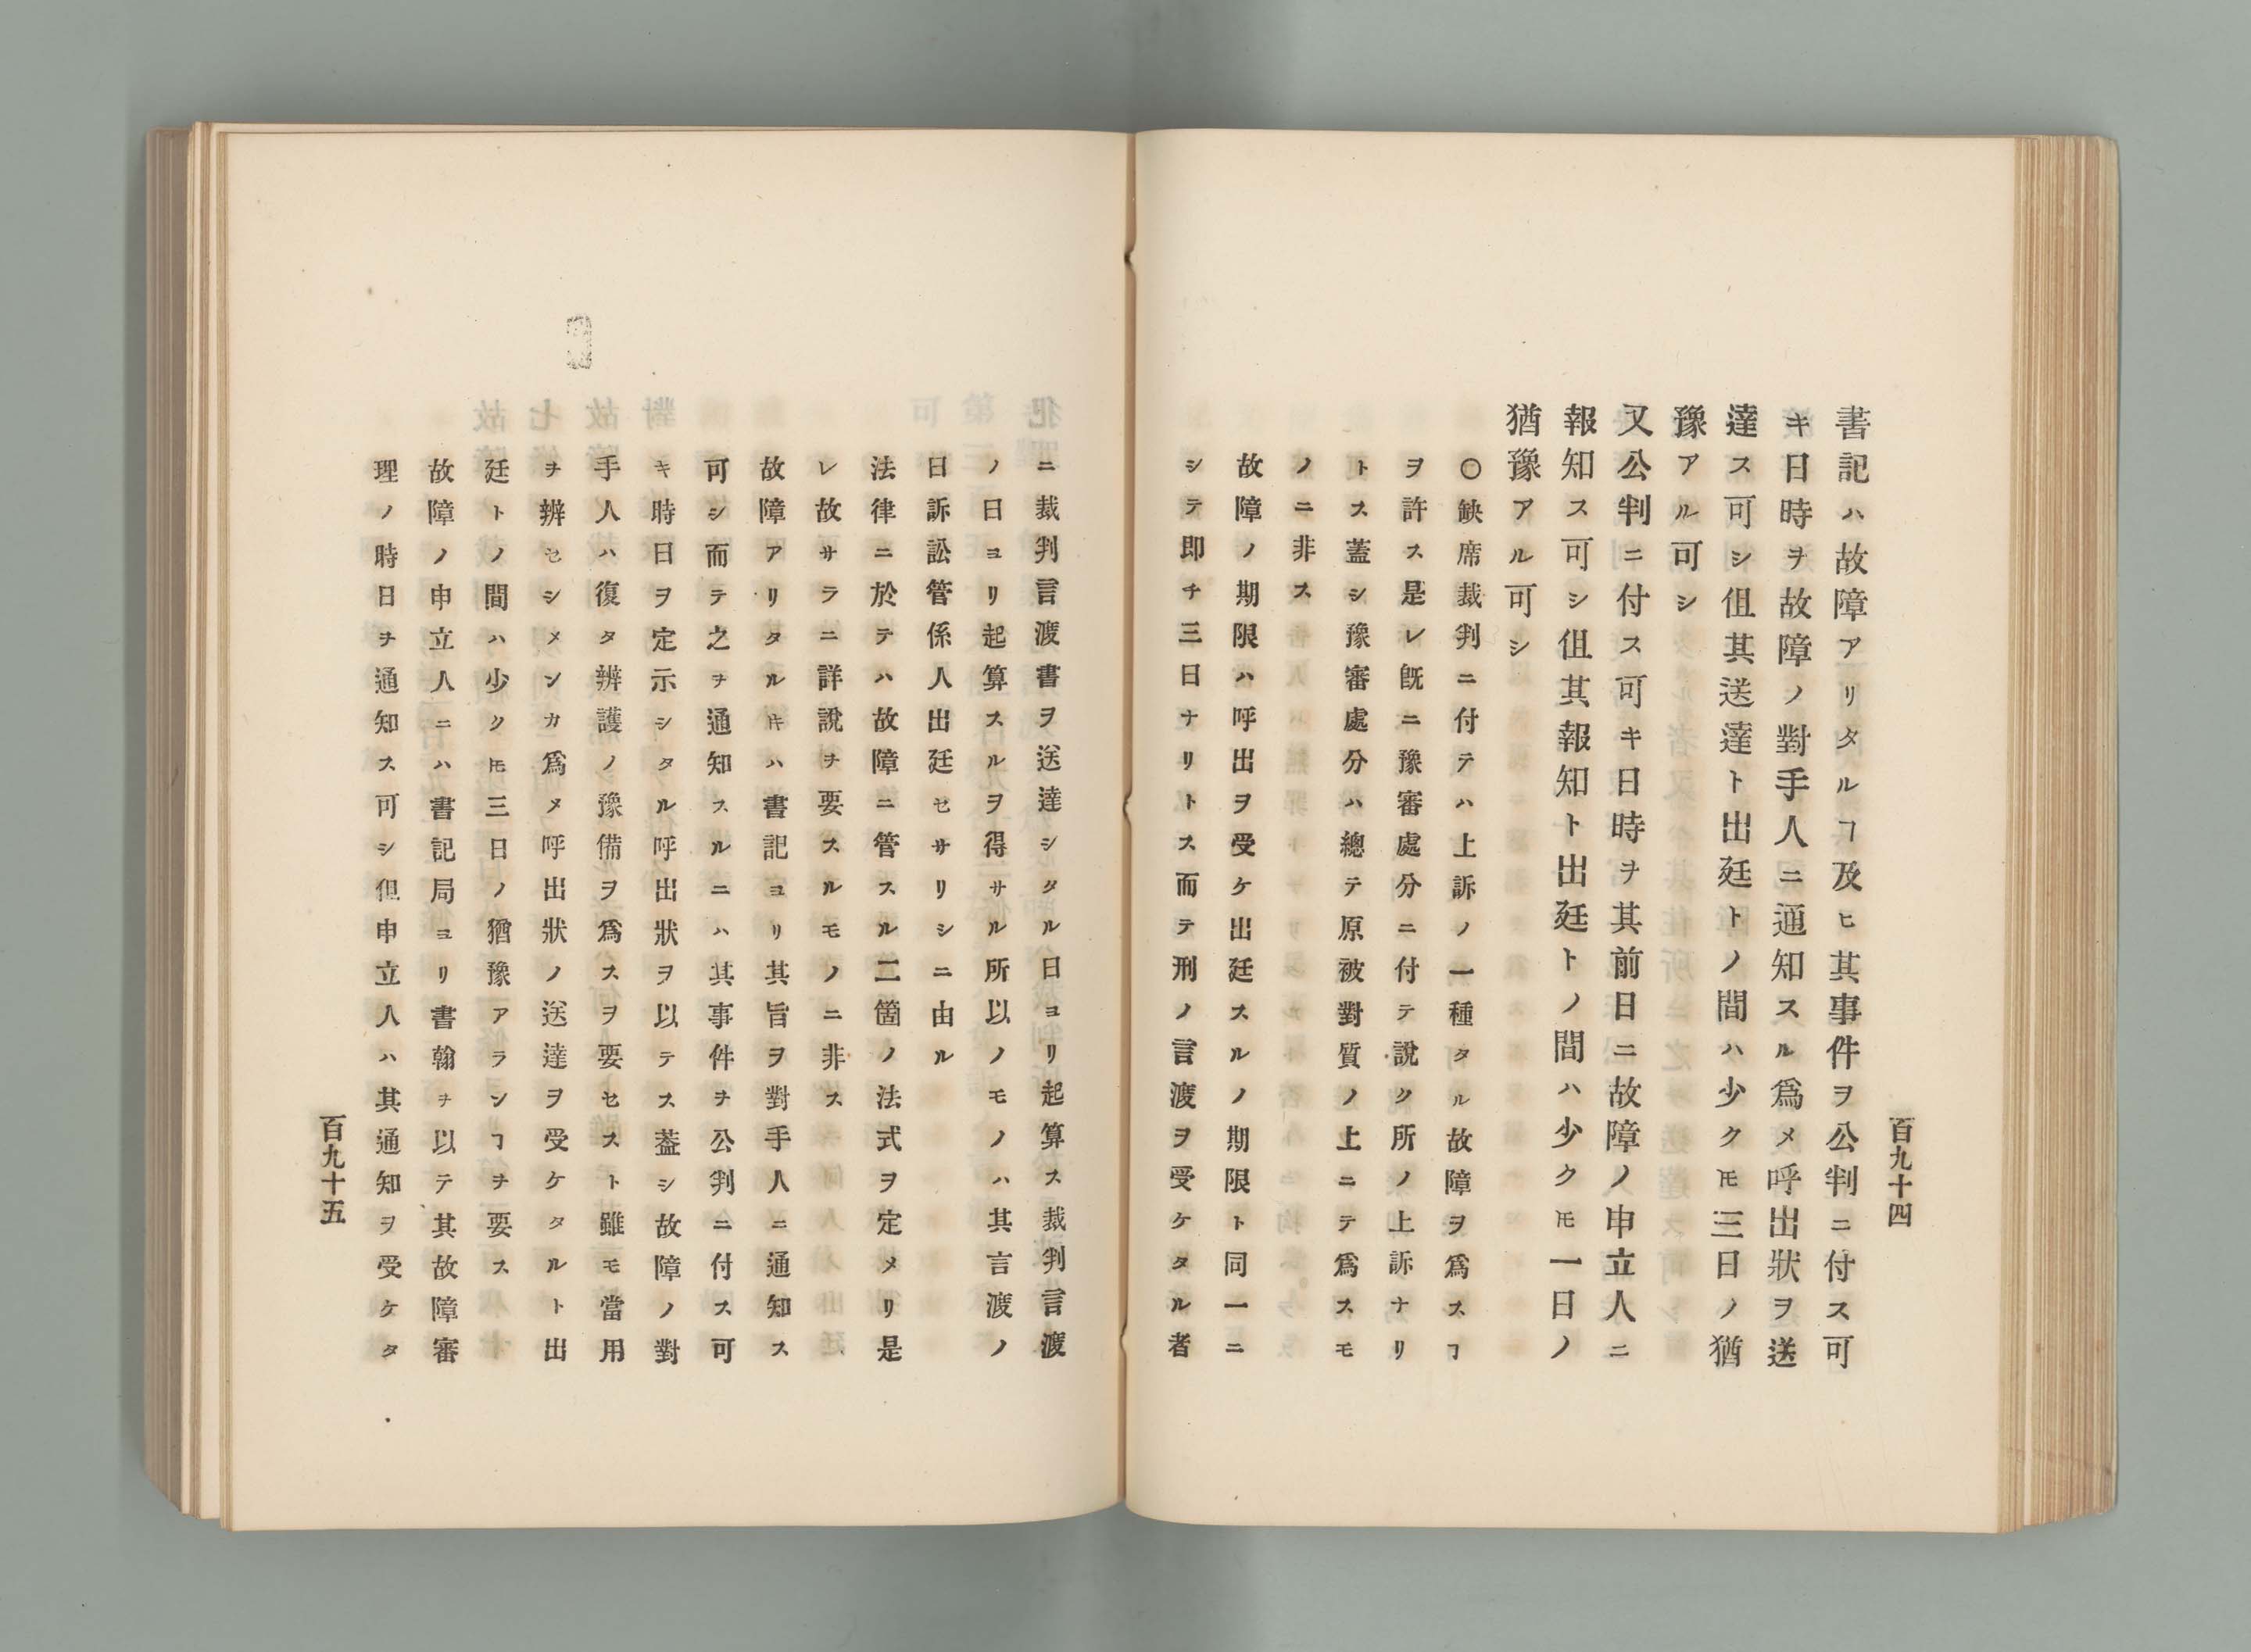 百九十四
書記ハ故障アリタルヿ及ヒ其事件ヲ公判ニ付ス可
キ日時ヲ故障ノ對手人ニ通知スル爲メ呼出狀ヲ送
達ス可シ但其送達ト出廷トノ間ハ少クトモ三日ノ猶
豫アル可シ
又公判ニ付ス可キ日時ヲ其前日ニ故障ノ申立人ニ
報知ス可シ但其報知ト出廷トノ間ハ少クトモ一日ノ
猶豫アル可シ
〇缺席裁判ニ付テハ上訴ノ一種タル故障ヲ爲スヿ
ヲ許ス是レ既ニ豫審處分ニ付テ說ク所ノ上訴ナリ
トス蓋シ豫審處分ハ總テ原被對質ノ上ニテ爲スモ
ノニ非ス
故障ノ期限ハ呼出ヲ受ケ出廷スルノ期限ト同一ニ
シテ即チ三日ナリトス而テ刑ノ言渡ヲ受ケタル者
ニ裁判言渡書ヲ送達シタル日ヨリ起算ス裁判言渡
ノ日ヨリ起算スルヲ得サル所以ノモノハ其言渡ノ
日訴訟管係人出廷セサリシニ由ル
法律ニ於テハ故障ニ管スル二箇ノ法式ヲ定メリ是
レ故サラニ詳說ヲ要スルモノニ非ス
故障アリタルトキハ書記ヨリ其旨ヲ對手人ニ通知ス
可シ而テ之ヲ通知スルニハ其事件ヲ公判ニ付ス可
キ時日ヲ定示シタル呼出狀ヲ以テス葢シ故障ノ對
手人ハ復タ辨護ノ豫備ヲ爲スヲ要セスト雖モ當用
ヲ辨セシメンカ爲メ呼出狀ノ送達ヲ受ケタルト出
廷トノ間ハ少クトモ三日ノ猶豫アランヿヲ要ス
故障ノ申立人ニハ書記局ヨリ書翰ヲ以テ其故障審
理ノ時日ヲ通知ス可シ但申立人ハ其通知ヲ受ケタ
百九十五